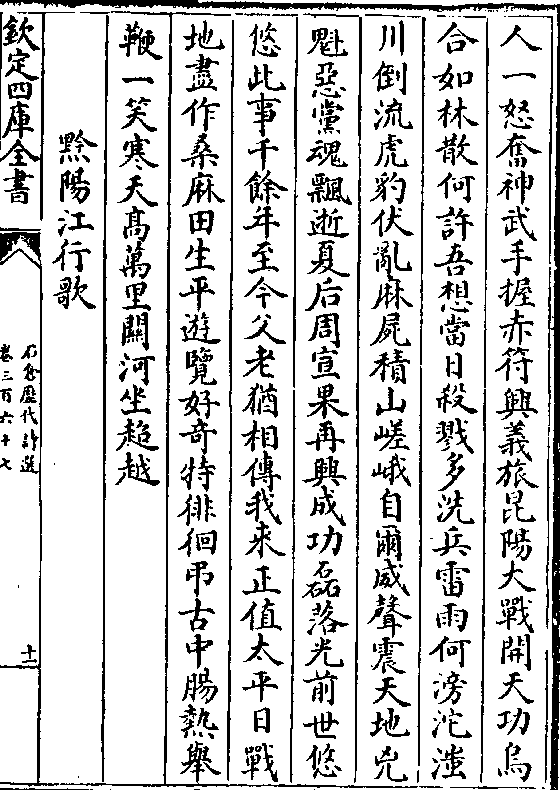 人一怒奮神武手握赤符興義旅昆陽大戰開天功烏
合如林散何許吾想當日殺戮多洗兵雷雨何滂沱滍
川倒流虎豹伏亂麻屍積山嵯峨自爾威聲震天地兇
魁惡黨魂飄逝夏后周宣果再興成功磊落光前世悠
悠此事千餘年至今父老猶相傳我來正值太平日戰
地盡作桑麻田生平遊覽好竒特徘徊弔古中腸熱舉
鞭一笑寒天髙萬里關河坐超越
黔陽江行歌
欽定四庫全書
石倉歴代詩選
卷三百六十七
十一